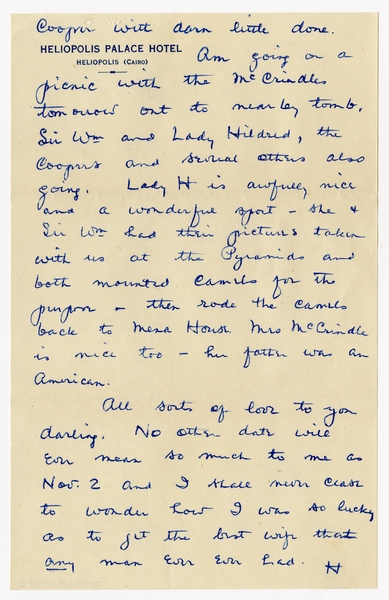 Cooper with darn little done.
HELIOPOLIS PALACE HOTEL
HELIOPOLIS (CAIRO)
Am going on a
picnic with the McCrindles
tomorrow out to nearby tomb.
Sir Wm and Lady Hildred, the
Coopers and several others also
going. Lady H is awfully nice
and a wonderful sport - she &
Sir Wm had their pictures taken
with us at the Pyramids and
both mounted camels for the
purpose - then rode the camels
back to Mena House. Mrs McCrindle
is nice too - her father was an
American.
All sorts of love to you
darling. No other date will
ever mean so much to me as
Nov. 2 and I shall never cease
to wonder how I was so lucky
as to get the best wife that
any man ever ever had. H